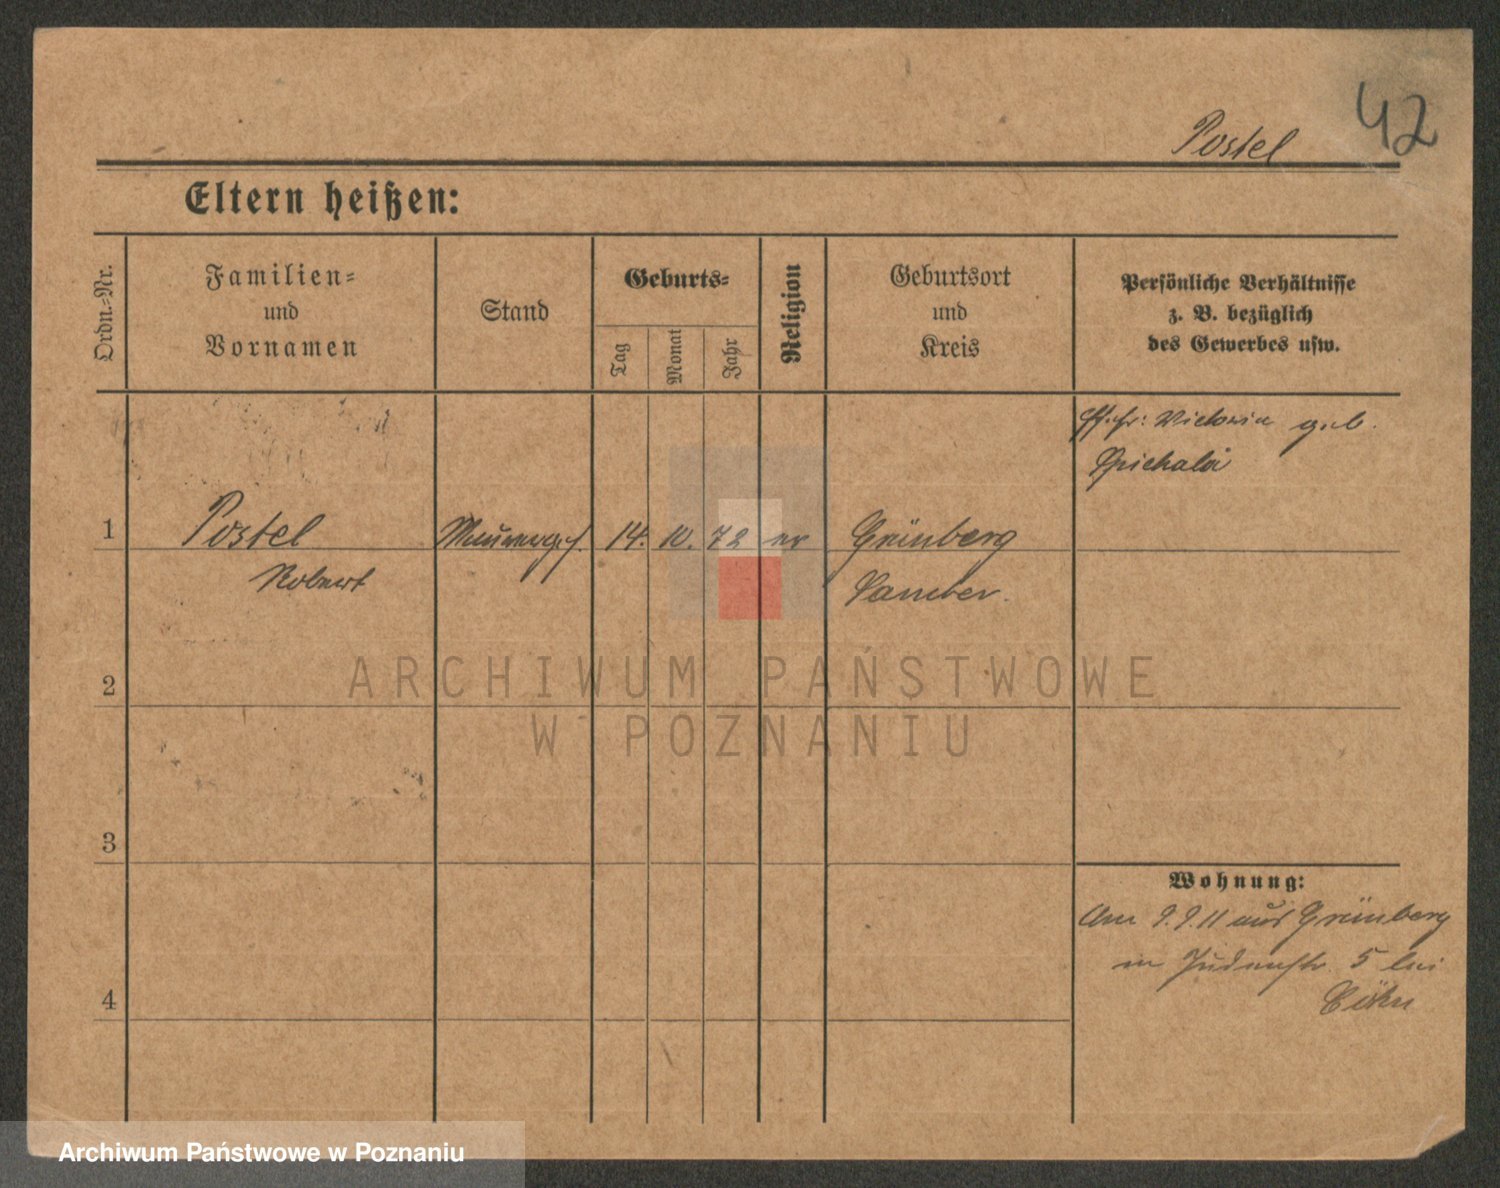 42
Postel
Eltern heißen:
Ordn.-Nr.
Familien-
und
Vornamen
Stand
Geburts-
Tag
Monat
Jahr
Religion
Geburtsort
und
Kreis
Persönliche Verhältnisse
z. B. bezüglich
des Gewerbes usw.
Victoria geb.
1
Postel
14. 10. 72
Grünberg
Robert
Samter.
2
ARCHIWUM PAŃSTWOWE
W POZNANIU
3
Wohnung:
Am 9.9.11 aus Grünberg
Judenstr. 5 bei
4
Archiwum Państwowe w Poznaniu